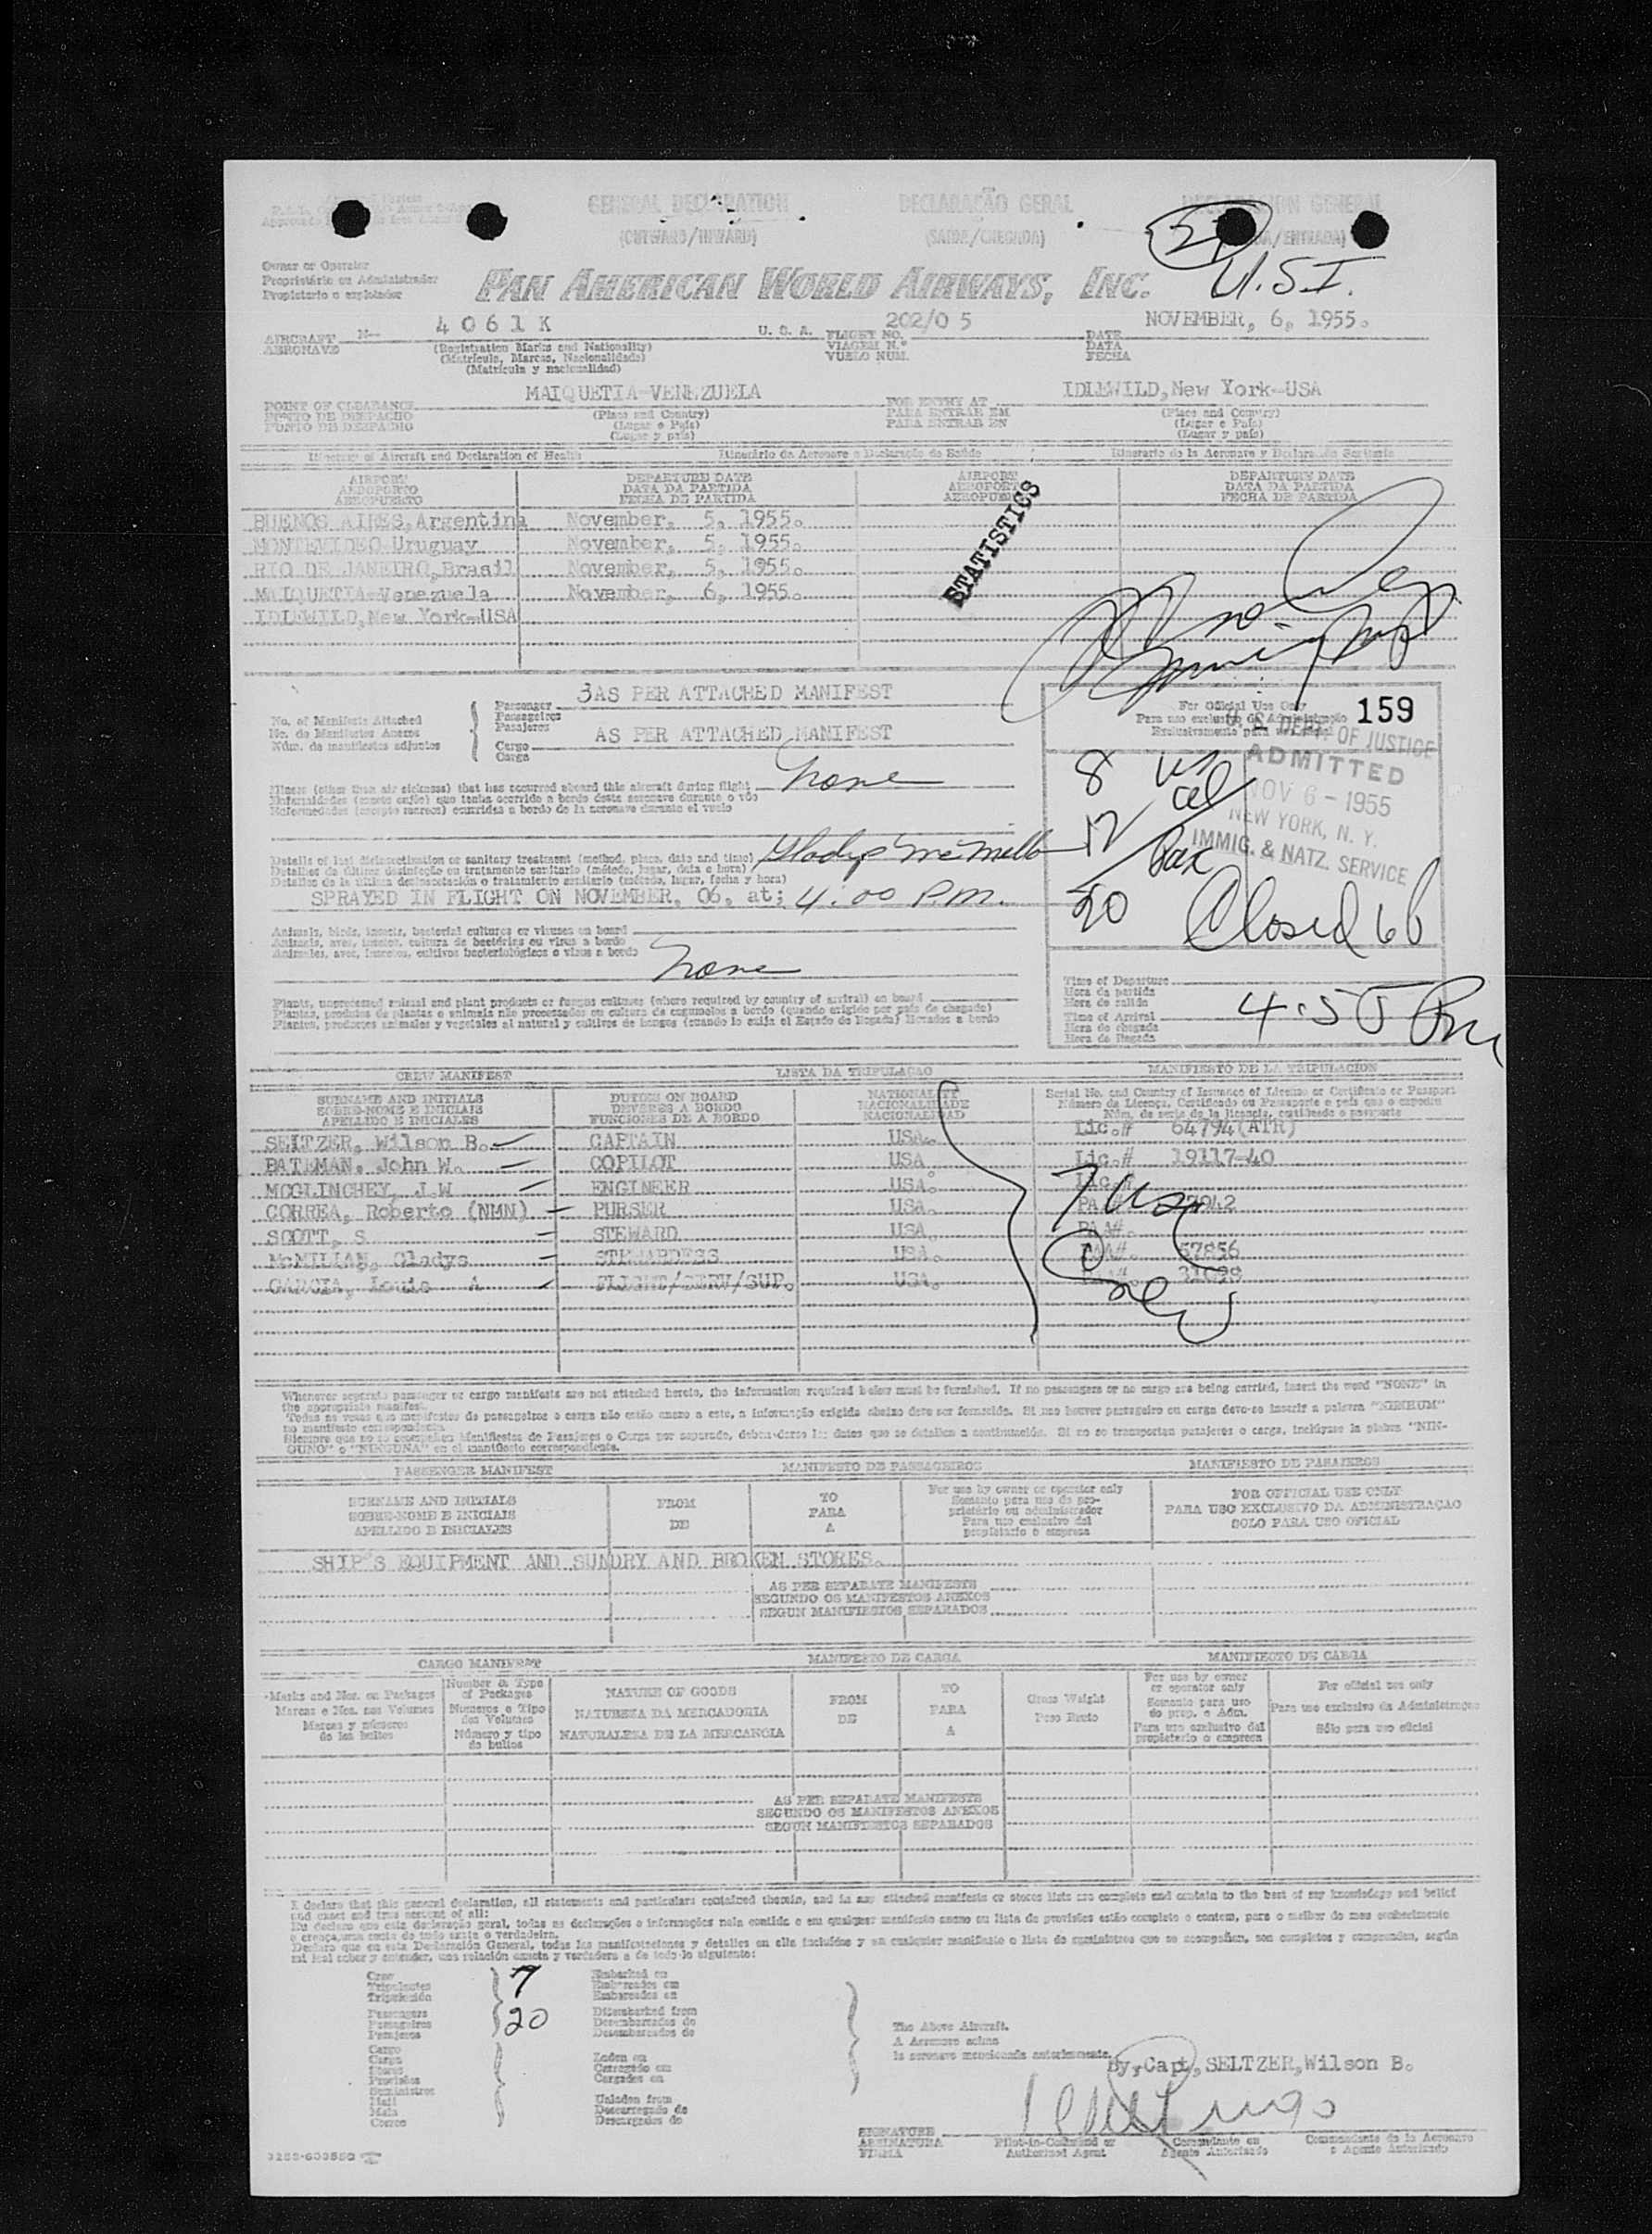 GENERAL DECLARATION DECLARAÇÃO GERAL DECLARACION GENERAL
(OUTWARD/INWARD) (SAIDA/CHEGADA) /ENTRADA)
Owner or Operator
Proprietário ou Administrador
Propietario o explotador
PAN AMERICAN WORLD AIRWAYS, INC.
U.S.I.
AIRCRAFT N— 4061K U. S. A. FLIGHT NO. 202/05 DATE NOVEMBER, 6, 1955.
AERONAVE (Registration Marks and Nationality) VIAGEM N.º DATA
(Matrícula, Marcas, Nacionalidade) VUELO NUM. FECHA
(Matrícula y nacionalidad)
POINT OF CLEARANCE MAIQUETIA-VENEZUELA FOR ENTRY AT IDLEWILD, New York-USA
PONTO DE DESPACHO (Place and Country) PARA ENTRAR EM (Place and Country)
PUNTO DE DESPACHO (Lugar e País) PARA ENTRAR EN (Lugar e País)
(Lugar y país) (Lugar y país)
Itinerary of Aircraft and Declaration of Health Itinerário da Aeronave e Declaração de Saúde Itinerario de la Aeronave y Declaración Sanitaria
AIRPORT DEPARTURE DATE AIRPORT DEPARTURE DATE
AEROPORTO DATA DA PARTIDA AEROPORTO DATA DA PARTIDA
AEROPUERTO FECHA DE PARTIDA AEROPUERTO FECHA DE PARTIDA
BUENOS AIRES, Argentina November, 5, 1955.
MONTEVIDEO-Uruguay November, 5, 1955.
RIO DE JANEIRO, Brasil November, 5, 1955.
MAIQUETIA-Venezuela November, 6, 1955.
IDLEWILD, New York-USA
STATISTICS
No. of Manifests Attached
No. de Manifestos Anexos
Núm. de manifiestos adjuntos
Passenger 3AS PER ATTACHED MANIFEST
Passageiros
Pasajeros
Cargo AS PER ATTACHED MANIFEST
Carga
For Official Use Only
159
U. S. DEPT. OF JUSTICE
ADMITTED
NOV 6 - 1955
NEW YORK, N. Y.
IMMIG. & NATZ. SERVICE
8 US
12
Pax
20 Closed
Illness (other than air sickness) that has occurred aboard this aircraft during flight none
Enfermidades (exceto enjôo) que tenha ocorrido a bordo desta aeronave durante o vôo
Enfermedades (excepto mareos) ocurridas a bordo de la aeronave durante el vuelo
Details of last disinsectization or sanitary treatment (method, place, date and time) Gladys McMillan
Detalhes da última desinfeção ou tratamento sanitário (método, lugar, data e hora)
Detalles de la última desinsectación o tratamiento sanitario (método, lugar, fecha y hora)
SPRAYED IN FLIGHT ON NOVEMBER, 06, at; 4:00 P.M.
Animals, birds, insects, bacterial cultures or viruses on board
Animais, aves, insetos, cultura de bactérias ou virus a bordo
Animales, aves, insectos, cultivos bacteriológicos o virus a bordo
none
Plants, unprocessed animal and plant products or fungus cultures (where required by country of arrival) on board
Plantas, produtos de plantas e animais não processados ou cultura de cogumelos a bordo (quando exigido por país de chegada)
Plantas, productos animales y vegetales al natural y cultivos de hongos (cuando lo exija el Estado de llegada) llevados a bordo
Time of Departure
Hora da partida
Hora de salida
Time of Arrival 4:55 Pm
Hora da chegada
Hora de llegada
CREW MANIFEST LISTA DA TRIPULAÇÃO MANIFIESTO DE LA TRIPULACION
SURNAME AND INITIALS DUTIES ON BOARD NATIONALITY Serial No. and Country of Issuance of License or Certificate or Passport
SOBRE-NOME E INICIAIS DEVERES A BORDO NACIONALIDADE Número da Licença, Certificado ou Passaporte e país que o expediu
APELLIDO E INICIALES FUNCIONES DE A BORDO NACIONALIDAD Núm. de serie de la licencia, certificado o pasaporte
SEITZER, Wilson B. CAPTAIN USA. Lic.# 64794(ATR)
BATEMAN, John W. COPILOT USA Lic.# 19117-40
MCGLINCHEY, J.W ENGINEER USA. Lic.#
CORREA, Roberto (NMN) PURSER USA.
SCOTT, S STEWARD USA. PAA#.
McMILIAN, Gladys STEWARDESS USA. PAA#. 57856
GARCIA, Louis A FLIGHT/SERV/SUP. USA.
7 USA
Crew
Whenever separate passenger or cargo manifests are not attached hereto, the information required below must be furnished. If no passengers or no cargo are being carried, insert the word "NONE" in
the appropriate manifest.
Todas as vezes que manifestos de passageiros e carga não estão anexo a este, a informação exigida abaixo deve ser fornecida. Si não houver passageiro ou carga deve-se inserir a palavra "NENHUM"
no manifesto correspondente.
Siempre que no se acompañen Manifiestos de Pasajeros o Carga por separado, deben darse los datos que se detallan a continuación. Si no se transportan pasajeros o carga, inclúyase la palabra "NIN-
GUNO" o "NINGUNA" en el manifiesto correspondiente.
PASSENGER MANIFEST MANIFESTO DE PASSAGEIROS MANIFIESTO DE PASAJEROS
SURNAME AND INITIALS FROM TO For use by owner or operator only FOR OFFICIAL USE ONLY
SOBRE-NOME E INICIAIS DE PARA Somente para uso do pro- PARA USO EXCLUSIVO DA ADMINISTRAÇAO
APELLIDO E INICIALES A prietário ou administrador SOLO PARA USO OFICIAL
Para uso exclusivo del
propietario o empresa
SHIP'S EQUIPMENT AND SUNDRY AND BROKEN STORES.
AS PER SEPARATE MANIFESTS
SEGUNDO OS MANIFESTOS ANEXOS
SEGUN MANIFIESTOS SEPARADOS
CARGO MANIFEST MANIFESTO DE CARGA MANIFIESTO DE CARGA
Marks and Nos. on Packages Number & Type of Packages NATURE OF GOODS FROM TO Gross Weight For use by owner or operator only For official use only
Marcas e Nos. nos Volumes Numeros e Tipo dos Volumes NATUREZA DA MERCADORIA DE PARA Peso Bruto Somente para uso do prop. e Adm. Para uso exclusivo da Administração
Marcas y números de los bultos Número y tipo de bultos NATURALEZA DE LA MERCANCIA A Para uso exclusivo del propietario o empresa Sólo para uso oficial
AS PER SEPARATE MANIFESTS
SEGUNDO OS MANIFESTOS ANEXOS
SEGUN MANIFIESTOS SEPARADOS
I declare that this general declaration, all statements and particulars contained therein, and in any attached manifests or stores lists are complete and contain to the best of my knowledge and belief
and exact and true account of all:
Eu declaro que esta declaração geral, todas as declarações e informações nela contida e em qualquer manifesto anexo ou lista de provisões estão completo e contem, para o melhor do meu conhecimento
e crença, uma conta de todo exata e verdadeira.
Declaro que en esta Declaración General, todas las manifestaciones y detalles en ella incluídos y en cualquier manifiesto o lista de suministros que se acompañen, son completos y comprenden, según
mi leal saber y entender, una relación exacta y verdadera de todo lo siguiente:
Crew 7 Embarked on
Tripulantes Embarcados em
Tripulación Embarcados en
Passengers 20 Disembarked from
Passageiros Desembarcados do
Pasajeros Desembarcados de
Cargo
Carga Laden on
Stores Carregado em
Provisões Cargados en
Suministros
Mail Unladen from
Mala Descarregado do
Correo Descargados de
The Above Aircraft.
A Aeronave acima
la aeronave mencionada anteriormente.
By, Capt, SELTZER, Wilson B.
SIGNATURE Pilot-in-Command or Comandante ou Comandante de la Aeronave
ASSINATURA Authorized Agent Agente Autorizado o Agente Autorizado
FIRMA